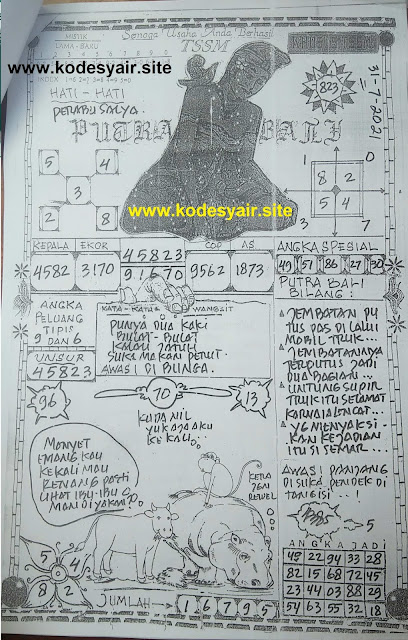 MISTIK
Semoga Usaha Anda Berhasil
LAMA - BARU
TSSM
www.kodesyair.site
HATI - HATI
PERABU SALYA.
823
31-7-2021
PUTRA BALI
5 4
3
2 8
1 0
8 2
5 4
3 7
www.kodesyair.site
KEPALA EKOR
4582 3170
45823
91670
COP AS
9562 1873
ANGKA SPESIAL
49 57 86 27 30
ANGKA
PELUANG
TIPIS
9 DAN 6
UNSUR
45823
KATA - KATA WANGSIT
PUNYA DUA KAKI
BULAT - BULAT
KALAU JATUH
SUKA MAKAN PERUT.
AWAS! DI BUNGA.
PUTRA BALI
BILANG:
JEMBATAN PU
TUS PAS DI LALUI
MOBIL TRUK...
JEMBATANNYA
TERPUTUS JADI
DUA BAGIAN...
UNTUNG SUPIR
TRUK ITU SELAMAT
KARNA IA LONCAT...
YG MENYAKSI -
KAN KEJADIAN
ITU SI SEMAR...
AWAS! PANJANG
DI SUKA PENDEK DI
TANGISI...!
5
96
70
13
KUDA NIL
YUK AJA AKU
KE KALI...
MONYET
EMANG KAU
KE KALI MAU
RENANG pasti
LIHAT IBU-IBU
MANDI YAKAN?..
KETIA
JGN
REWEL
5 4
8 2
JUMLAH
1 6 7 9 5
ANGKA JADI
45 22 94 33 28
82 15 68 72 45
23 44 03 88 29
54 63 55 32 18